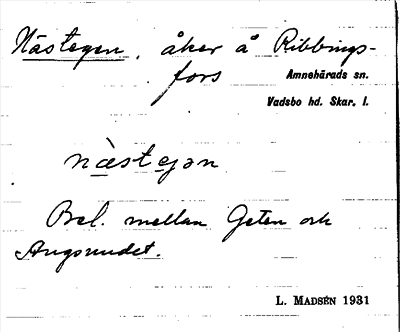 Nästegen, åker å Ribbings-
fors
Amnehärads sn.
Vadsbo hd. Skar. l.
næ̀stęjən
Bel. mellan Geten och
Ängsundet.
L. MADSÉN 1931